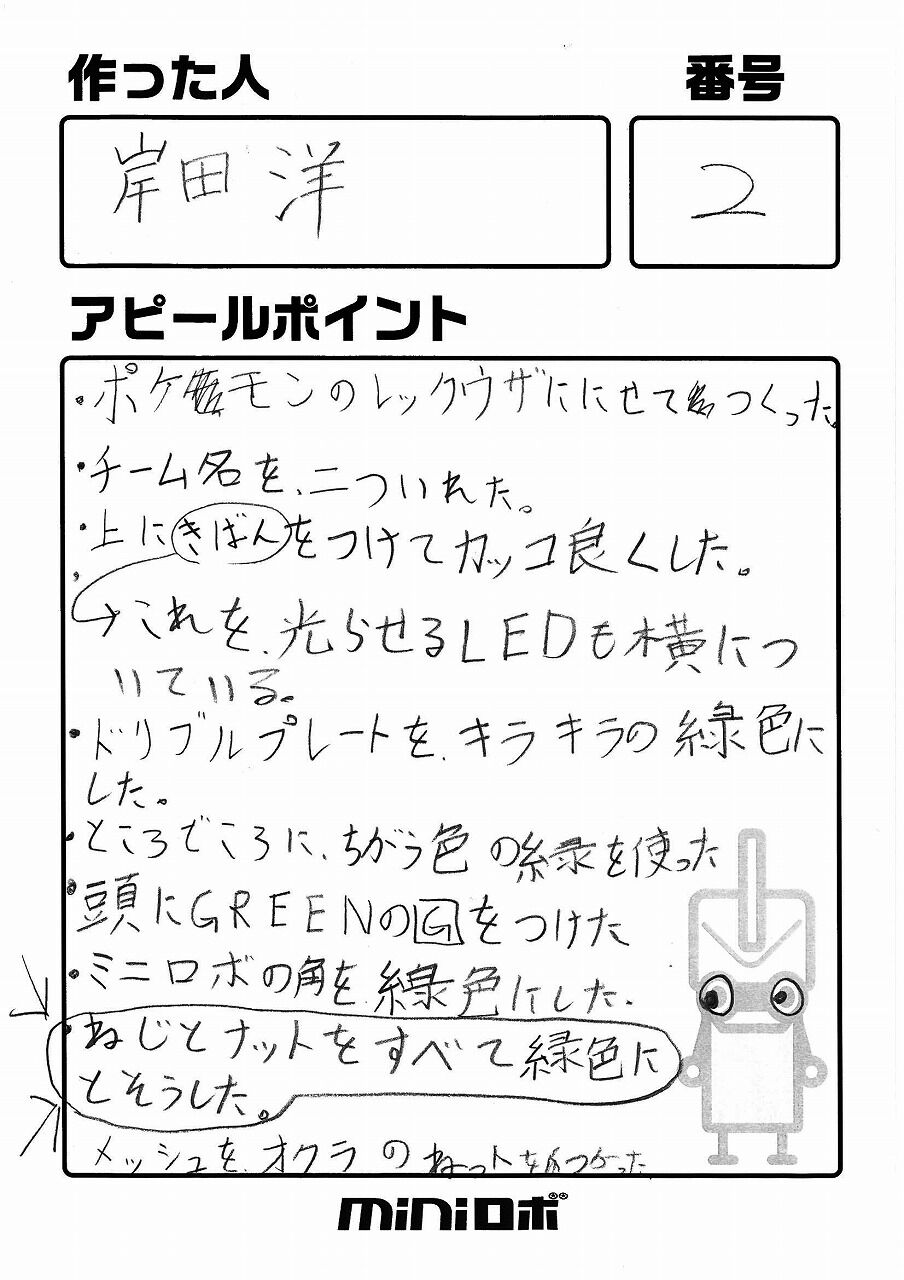 作った人
番号
岸田 洋
2
アピールポイント
・ポケモンのレックウザににせてつくった。
・チーム名を、二ついれた。
・上にきばんをつけてカッコ良くした。
→これを、光らせるLEDも横につ
いている。
・ドリブルプレートを、キラキラの緑色に
した。
・ところどころに、ちがう色の緑を使った
・頭にGREENのGをつけた
・ミニロボの角を、緑色にした。
・ねじとナットをすべて緑色に
とそうした。
メッシュを、オクラのねっとを
miniロボ